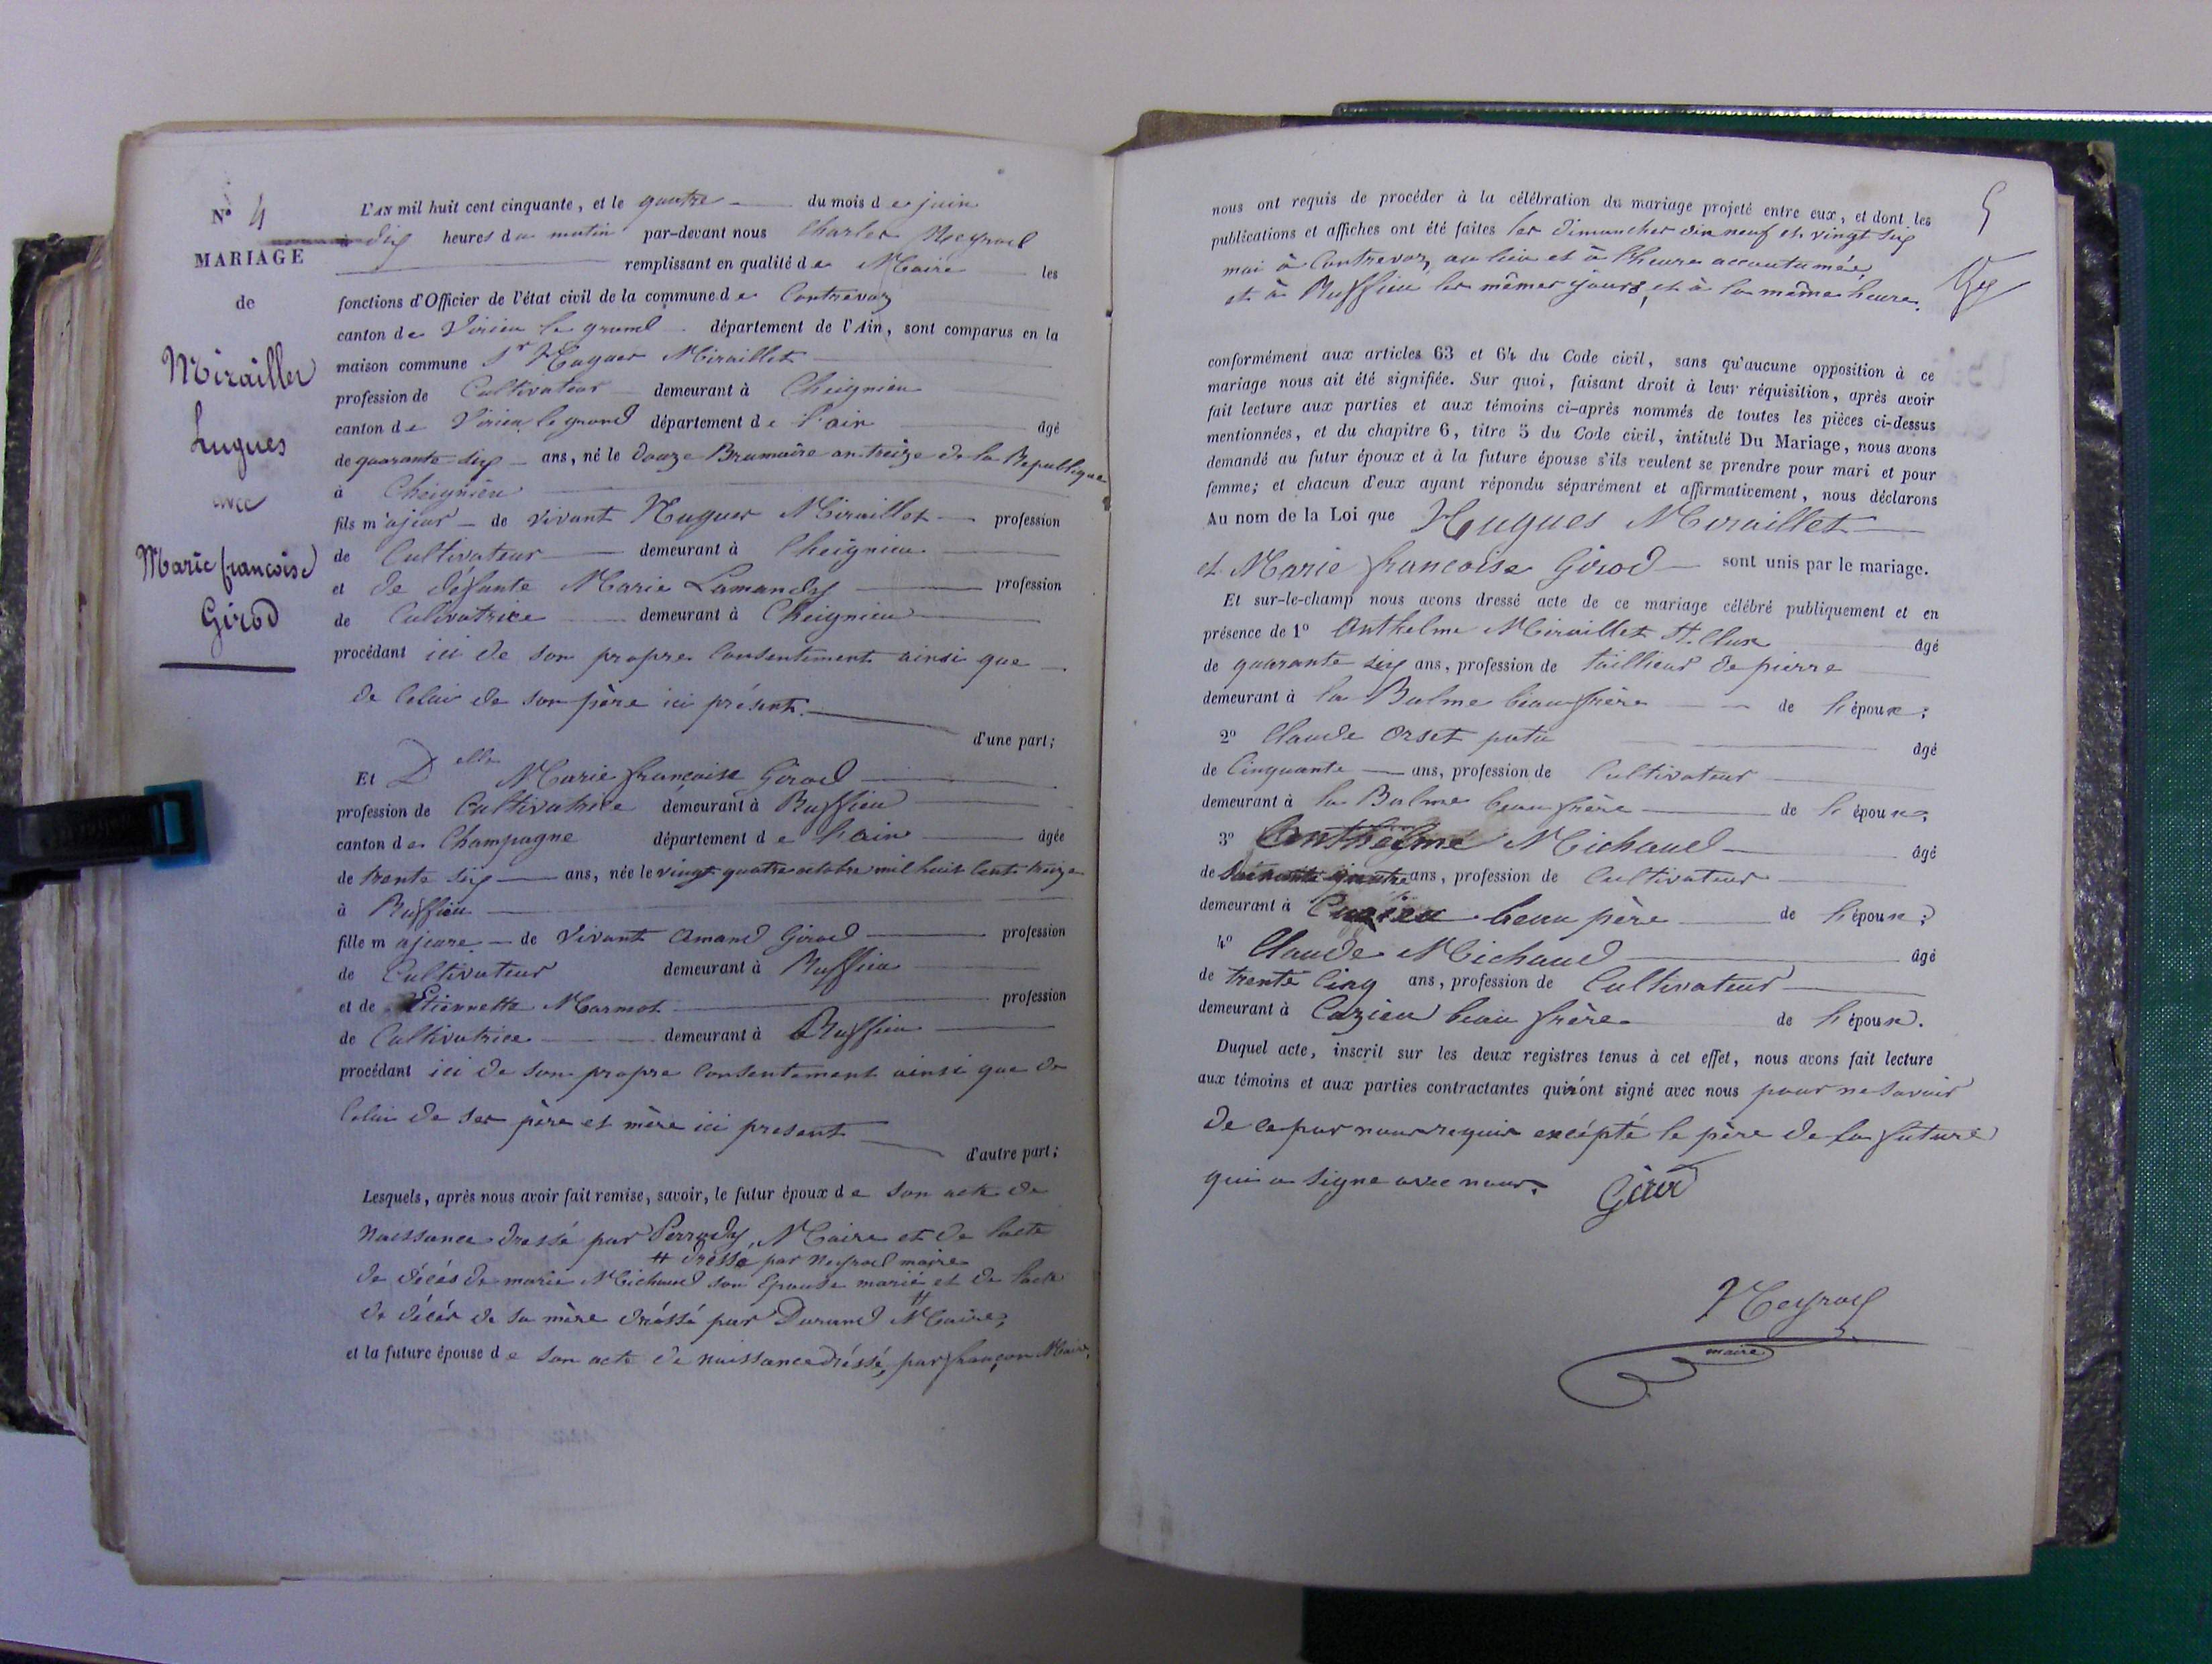 N° 4
MARIAGE
de
Miraillet
hugues
avec
Marie francoise
Girod
L'AN mil huit cent cinquante, et le quatre du mois de juin
à dix heures du matin par-devant nous Charles Neyroud
remplissant en qualité de Maire les
fonctions d'Officier de l'état civil de la commune de Contrevoz
canton de Virieu le grand département de l'Ain, sont comparus en la
maison commune Sr Hugues Miraillet
profession de Cultivateur demeurant à Cheignieu
canton de Virieu le grand département de l'ain âgé
de quarante six ans, né le douze Brumaire an treize de la Republique
à Cheignieu
fils majeur de vivant Hugues Miraillet profession
de Cultivateur demeurant à Cheignieu
et de défunte Marie Lamandy profession
de Cultivatrice demeurant à Cheignieu
procédant ici de son propre Consentement ainsi que
de Celui de son père ici présent.
d'une part;
Et Delle Marie francoise Girod
profession de Cultivatrice demeurant à Ruffieu
canton de Champagne département de l'ain âgée
de trente six ans, née le vingt quatre octobre mil huit cent treize
à Ruffieu
fille majeure de Vivant Amand Girod profession
de Cultivateur demeurant à Ruffieu
et de Etiennette Marmot profession
de Cultivatrice demeurant à Ruffieu
procédant ici de son propre Consentement ainsi que de
Celui de ses père et mère ici present
d'autre part;
Lesquels, après nous avoir fait remise, savoir, le futur époux de son acte de
Naissance dressé par Perrody, Maire et de l'acte
# dressé par Neyroud maire
de décés de marie Michaud son Epouse marié et de l'acte
#
de décés de sa mère dréssé par Durand Maire;
et la future épouse de son acte de naissance dréssé, par françon Maire,
5
nous ont requis de procéder à la célébration du mariage projeté entre eux, et dont les
publications et affiches ont été faites les dimanches dix neuf et vingt six
mai à Contrevoz, au lieu et à l'heure accoutumée,
et à Ruffieu les mêmes jours, et à la même heure.
conformément aux articles 63 et 64 du Code civil, sans qu'aucune opposition à ce
mariage nous ait été signifiée. Sur quoi, faisant droit à leur réquisition, après avoir
fait lecture aux parties et aux témoins ci-après nommés de toutes les pièces ci-dessus
mentionnées, et du chapitre 6, titre 5 du Code civil, intitulé Du Mariage, nous avons
demandé au futur époux et à la future épouse s'ils veulent se prendre pour mari et pour
femme; et chacun d'eux ayant répondu séparément et affirmativement, nous déclarons
Au nom de la Loi que Hugues Miraillet
et Marie francoise Girod sont unis par le mariage.
Et sur-le-champ nous avons dressé acte de ce mariage célébré publiquement et en
présence de 1° Anthelme Miraillet âgé
de quarante six ans, profession de taillieur de pierre
demeurant à la Balme beau frère de l'époux;
2° Claude Orset âgé
de Cinquante ans, profession de Cultivateur
demeurant à la Balme beau frère de l'époux;
3° Anthelme Michaud âgé
de Soixante quatre ans, profession de Cultivateur
demeurant à Cuzieu beau père de l'époux;
4° Claude Michaud âgé
de trente Cinq ans, profession de Cultivateur
demeurant à Cuzieu beau frère de l'époux.
Duquel acte, inscrit sur les deux registres tenus à cet effet, nous avons fait lecture
aux témoins et aux parties contractantes qui n'ont signé avec nous pour ne savoir
de ce par nous requis excépté le père de la future
qui a signe avec nous.
Girod
Neyroud
maire